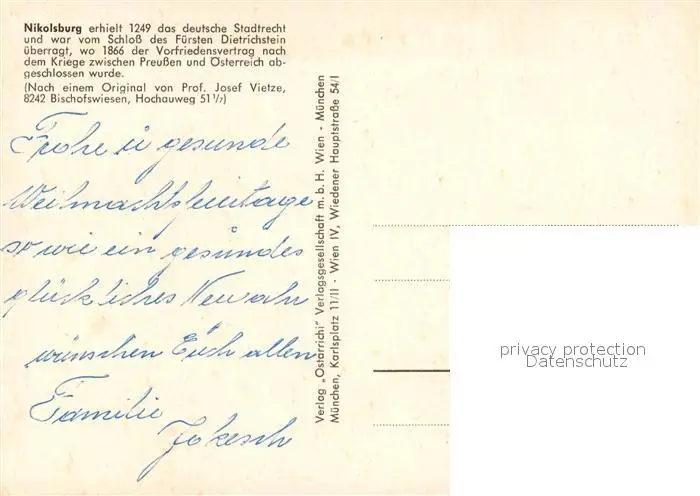 Nikolsburg erhielt 1249 das deutsche Stadtrecht
und war vom Schloß des Fürsten Dietrichstein
überragt, wo 1866 der Vorfriedensvertrag nach
dem Kriege zwischen Preußen und Österreich ab-
geschlossen wurde.
(Nach einem Original von Prof. Josef Vietze,
8242 Bischofswiesen, Hochauweg 51 1/7)
Frohe u gesunde
Weihnachtsfeiertage
so wie ein gesundes
glückliches Neujahr
wünschen Euch allen
Familie
Jokesch
Verlag „Ostarrichi" Verlagsgesellschaft m. b. H. Wien - München
München, Karlsplatz 11/II - Wien IV, Wiedener Hauptstraße 54/I
privacy protection
Datenschutz